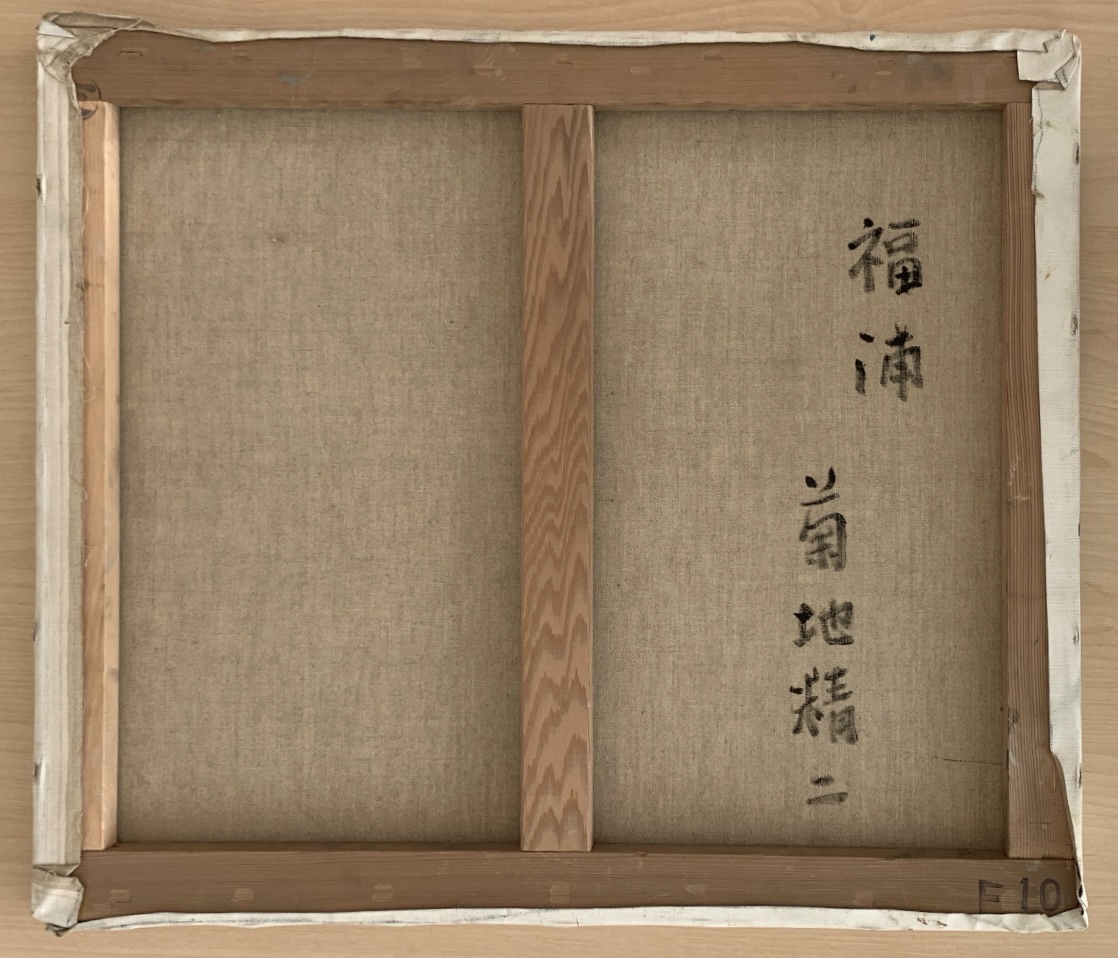 福浦
菊地精二
F10